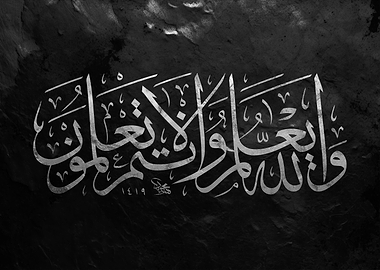 والله يعلم وأنتم لا تعلمون
١٤١٩